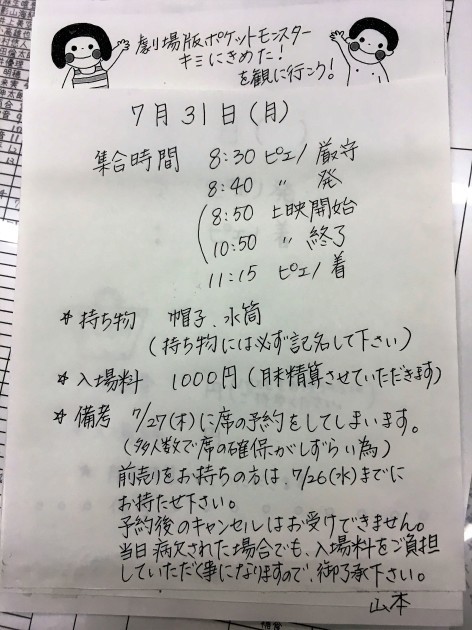 劇場版ポケットモンスター
キミにきめた!
を観に行こう!
7月31日(月)
集合時間 8:30 ピエノ厳守
8:40 〃 発
8:50 上映開始
10:50 〃 終了
11:15 ピエノ着
☆持ち物 帽子、水筒
(持ち物には必ず記名して下さい)
☆入場料 1000円(月末精算させていただきます)
☆備考 7/27(木)に席の予約をしてしまいます。
(多人数で席の確保がしずらい為)
前売りをお持ちの方は、7/26(水)までに
お持たせ下さい。
予約後のキャンセルはお受けできません。
当日病欠された場合でも、入場料をご負担
していただく事になりますので、御了承下さい。
山本